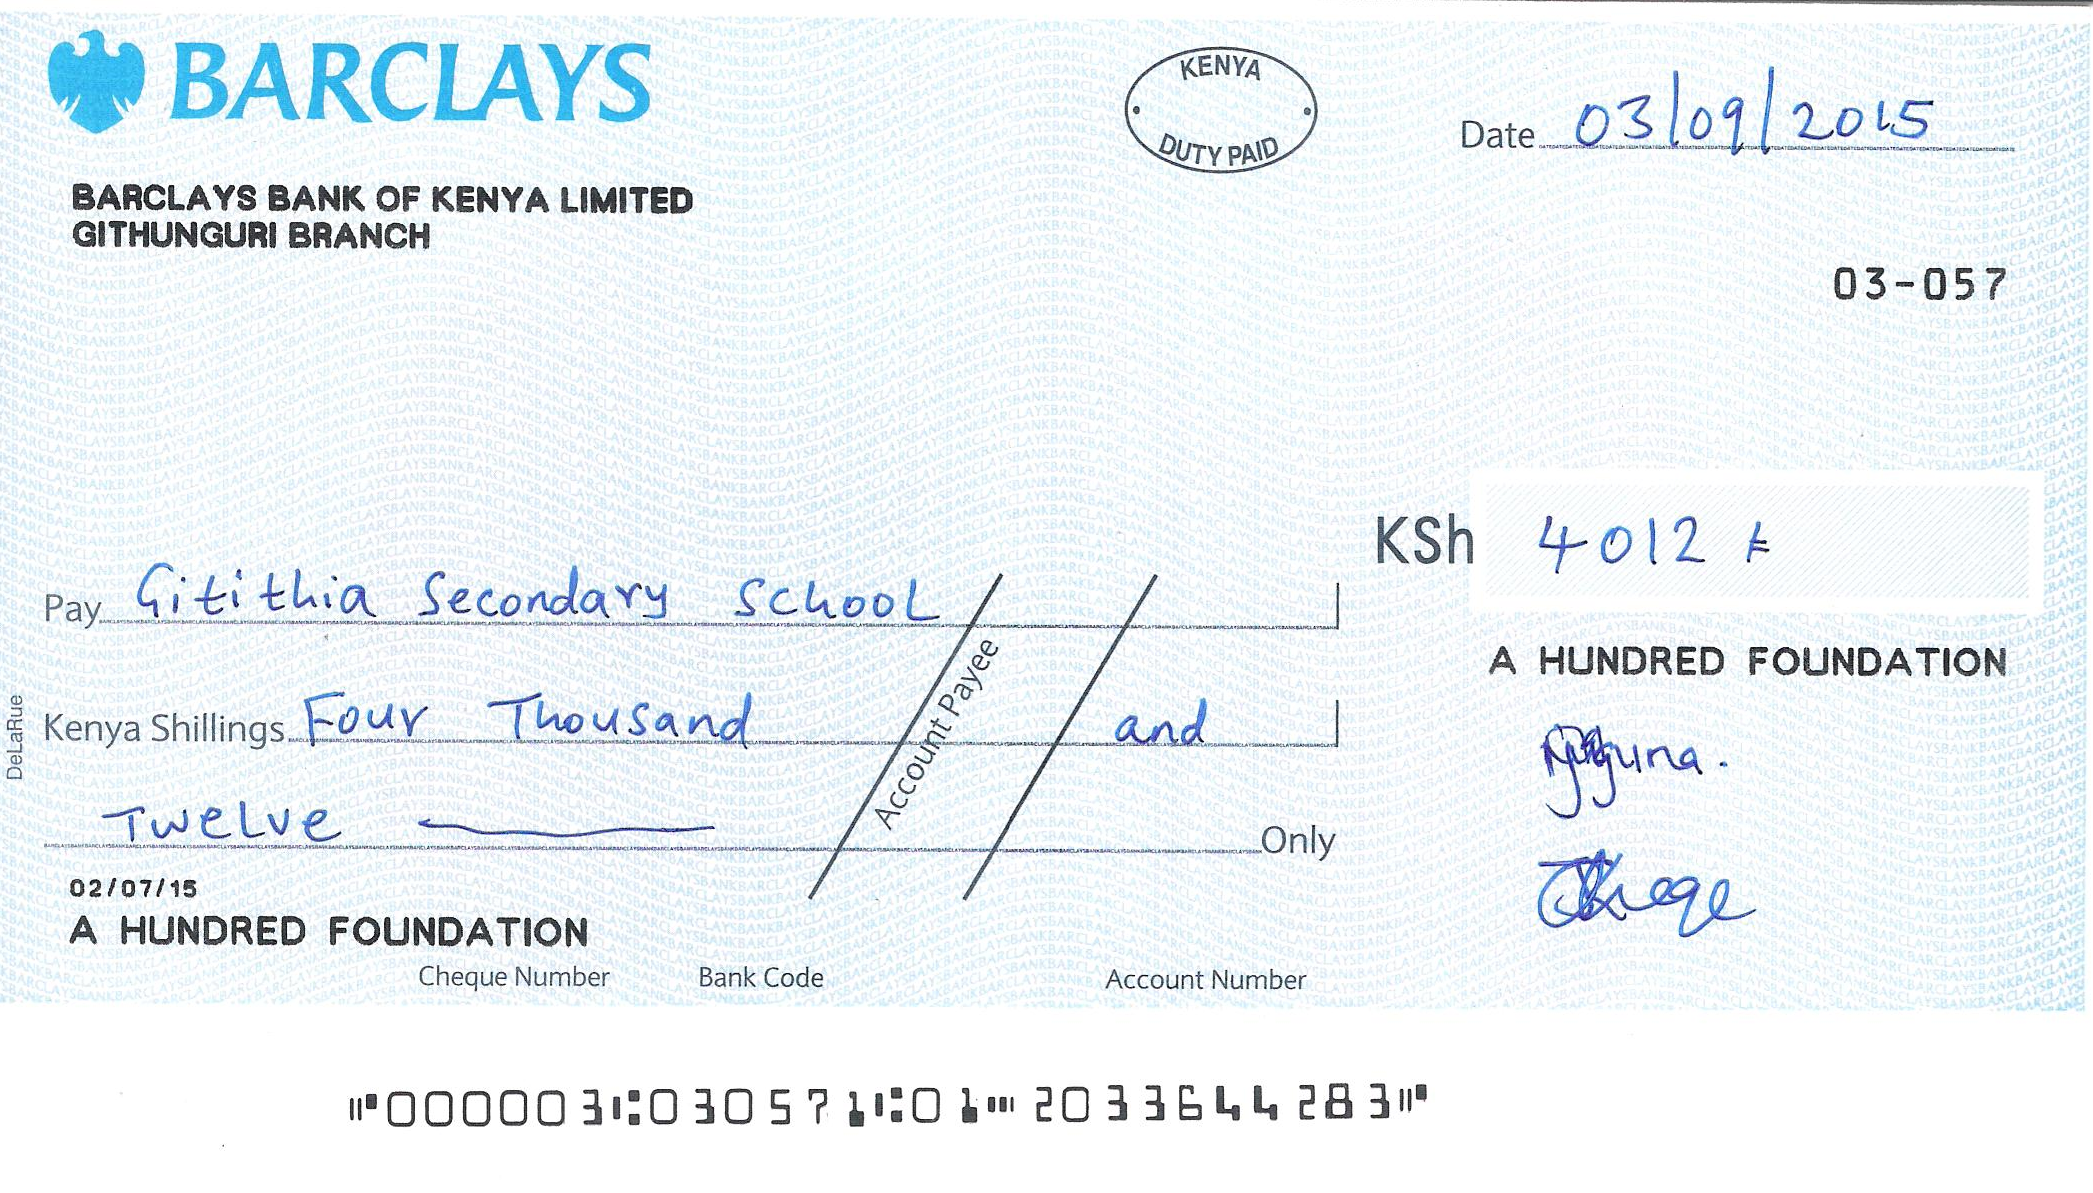 BARCLAYS
KENYA
DUTY PAID
Date 03/09/2015
BARCLAYS BANK OF KENYA LIMITED
GITHUNGURI BRANCH
03-057
KSh 4012
Pay Gitithia Secondary School
A HUNDRED FOUNDATION
Account Payee
Kenya Shillings Four Thousand and
Njuguna.
Twelve Only
DeLaRue
02/07/15
A HUNDRED FOUNDATION
Cheque Number Bank Code Account Number
⑈000003⑆030571⑆01⑉2033644283⑈